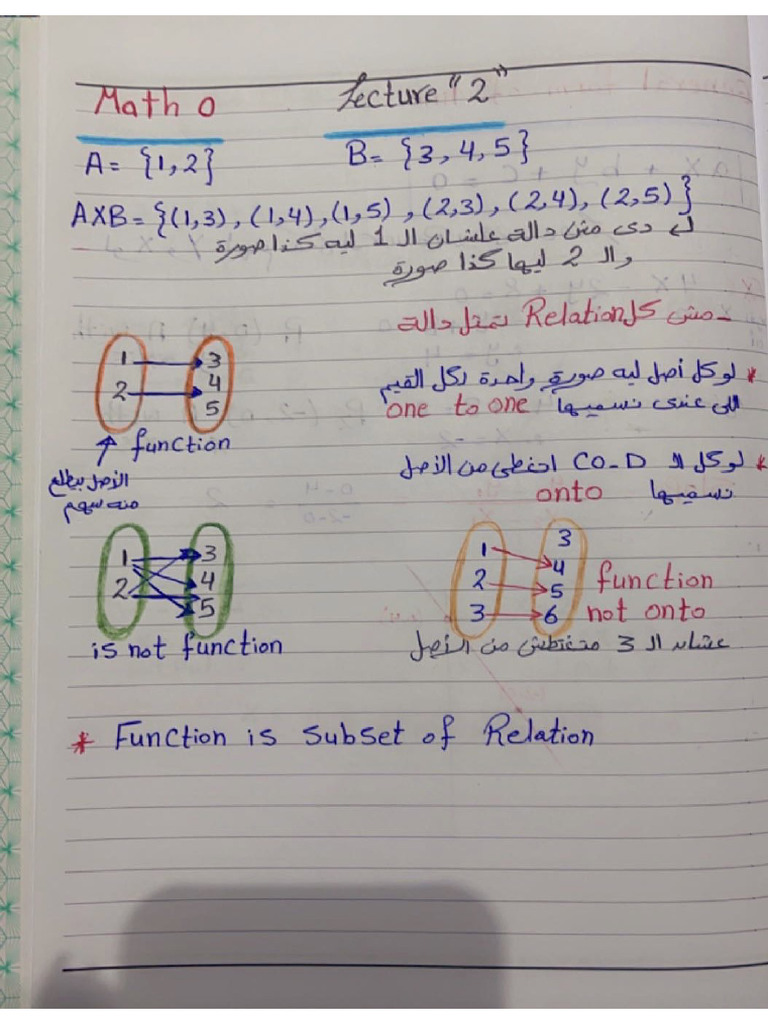 Math 0
Lecture "2"
A = {1,2}
B = {3,4,5}
A×B = {(1,3), (1,4), (1,5), (2,3), (2,4), (2,5)}
دى مش دالة علشان الـ 1 ليه كذا صورة
والـ 2 ليها كذا صورة
- مش كل Relation تمثل دالة
1
2
3
4
5
function
الأصل بيطلع
منه سهم
* لو كل أصل ليه صورة واحدة لكل القيم
اللى عندى نسميها one to one
* لو كل الـ CO-D اتغطى من الأصل
نسميها onto
1
2
3
4
5
is not function
1
2
3
3
4
5
6
function
not onto
عشان الـ 3 متغطتش من الأصل
* Function is subset of Relation